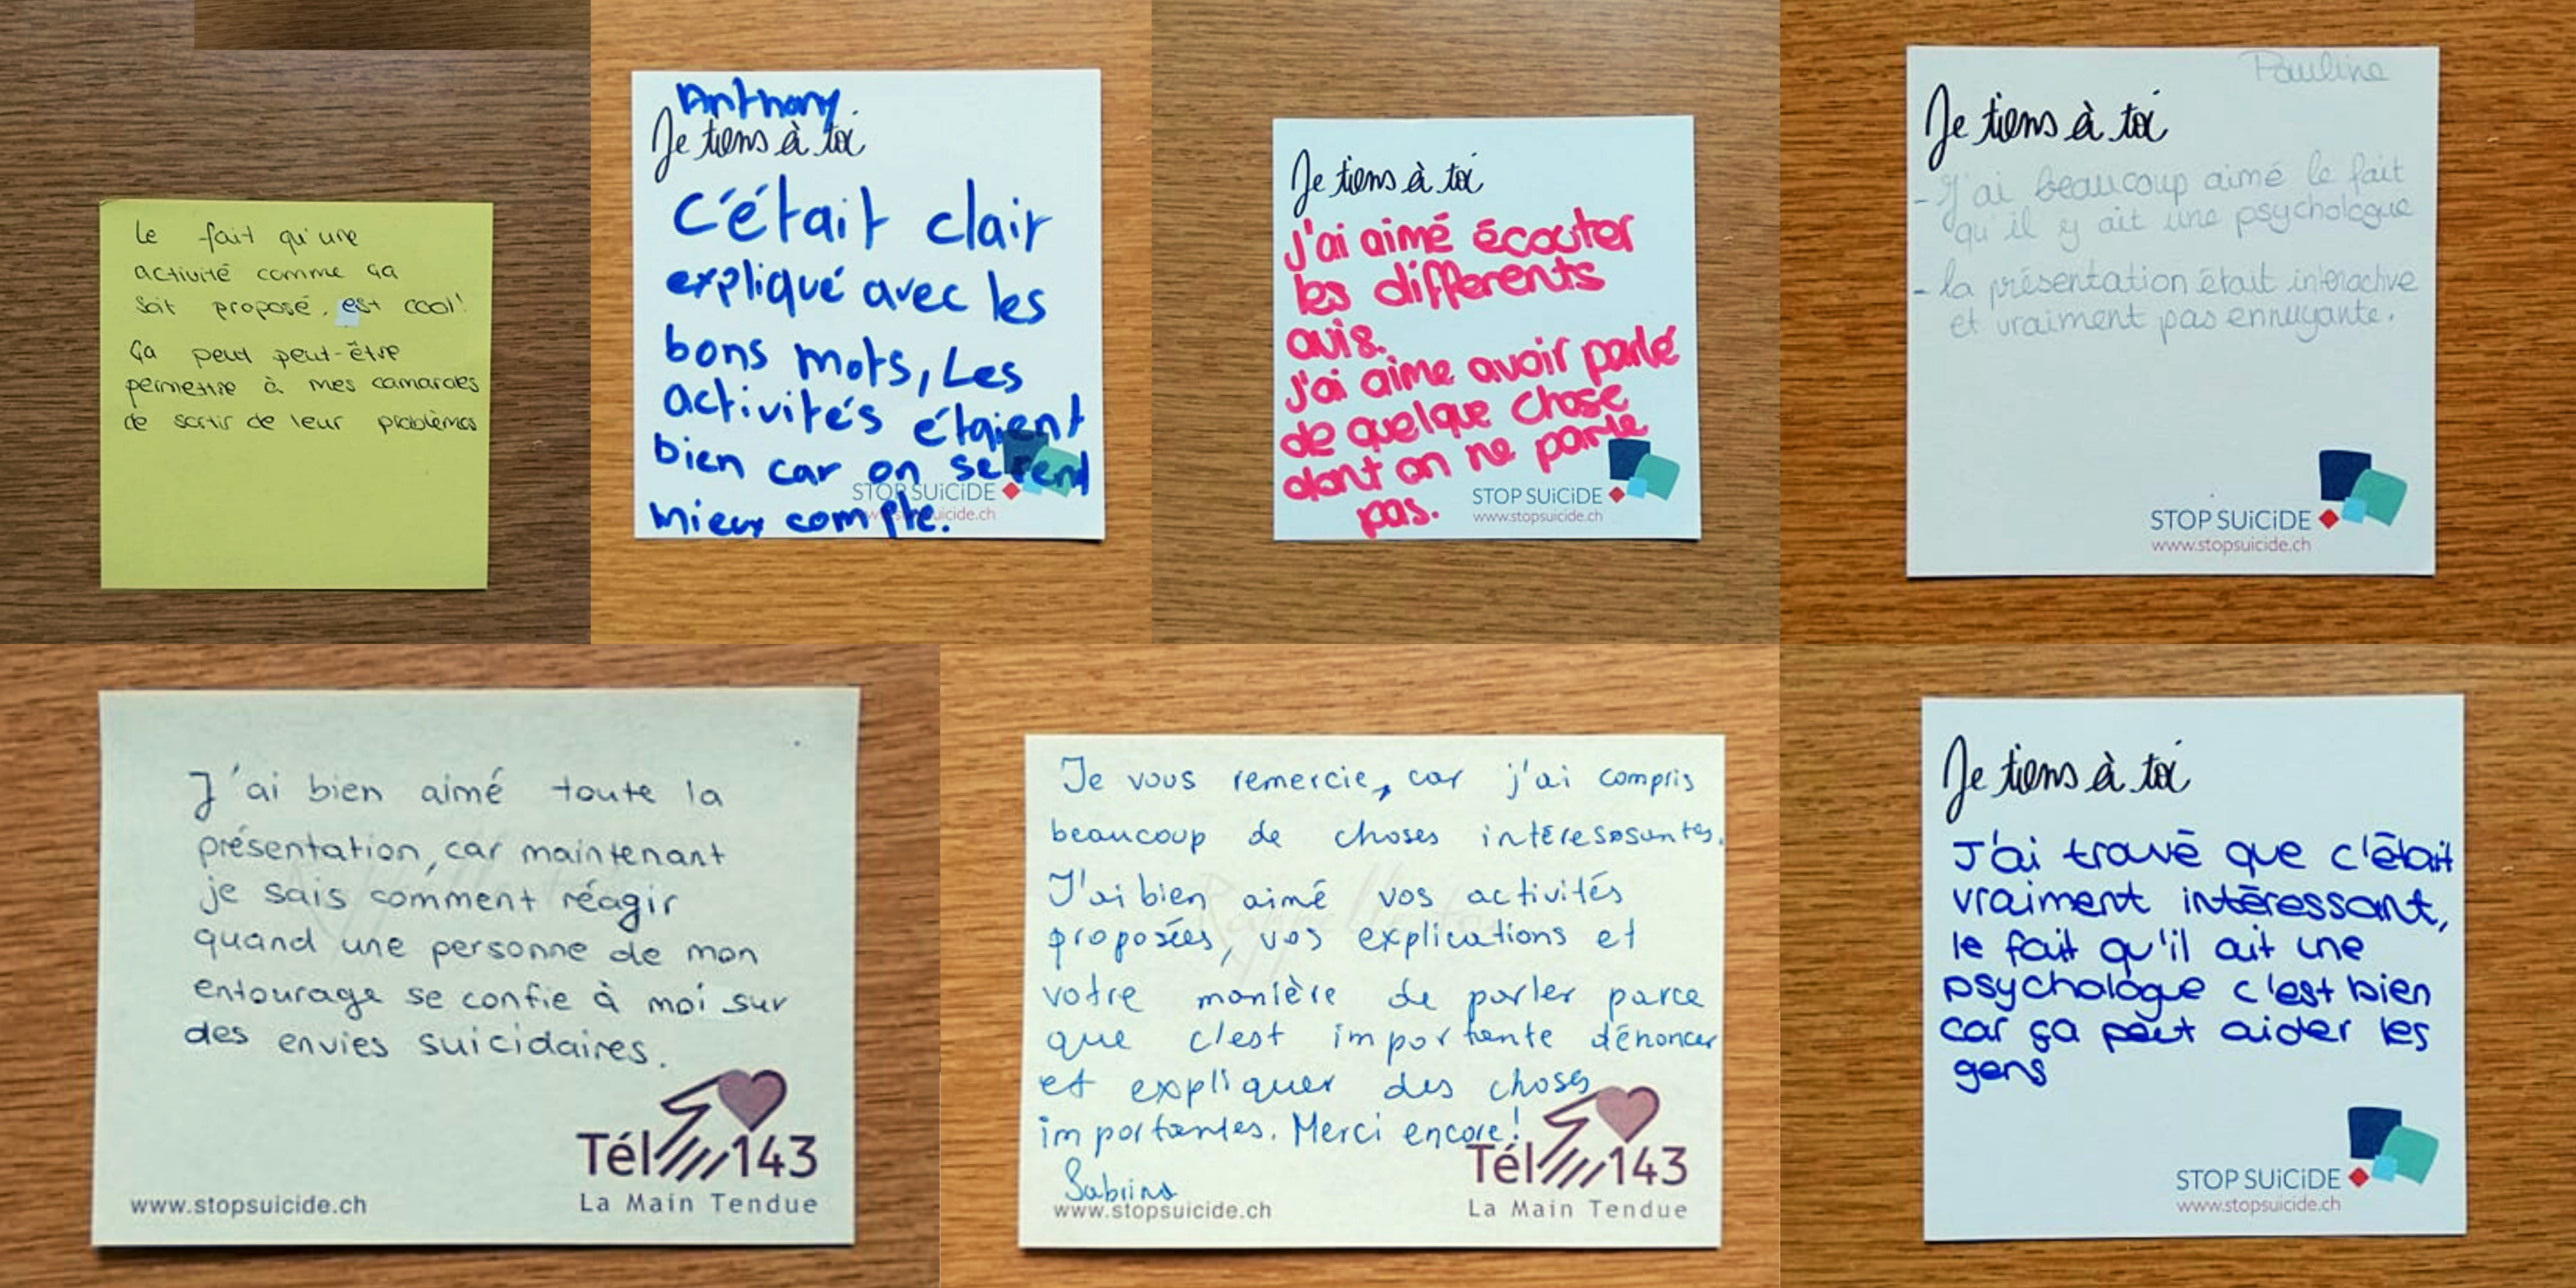 Le fait qu'une
activité comme ça
soit proposé, est cool!
ça peut peut-être
permettre à mes camarades
de sortir de leur problèmes
Anthony
Je tiens à toi
C'était clair
expliqué avec les
bons mots, Les
activités étaient
bien car on se rend
mieux compte.
STOP SUiCiDE
www.stopsuicide.ch
Je tiens à toi
J'ai aimé écouter
les différents
avis.
J'ai aimé avoir parlé
de quelque chose
dont on ne parle
pas.
STOP SUiCiDE
www.stopsuicide.ch
Pauline
Je tiens à toi
- J'ai beaucoup aimé le fait
qu'il y ait une psychologue
- la présentation était interactive
et vraiment pas ennuyante.
STOP SUiCiDE
www.stopsuicide.ch
J'ai bien aimé toute la
présentation, car maintenant
je sais comment réagir
quand une personne de mon
entourage se confie à moi sur
des envies suicidaires.
Tél 143
La Main Tendue
www.stopsuicide.ch
Je vous remercie, car j'ai compris
beaucoup de choses intéressantes.
J'ai bien aimé vos activités
proposées, vos explications et
votre manière de parler parce
que c'est importante dénoncer
et expliquer des choses
importantes. Merci encore!
Sabrina
www.stopsuicide.ch
Tél 143
La Main Tendue
Je tiens à toi
J'ai trouvé que c'était
vraiment intéressant,
le fait qu'il ait une
psychologue c'est bien
car ça peut aider les
gens
STOP SUiCiDE
www.stopsuicide.ch